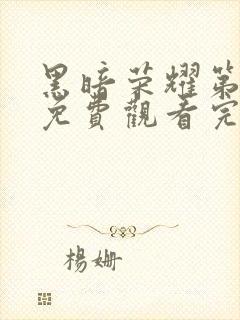 黑暗荣耀第
免費觀看完
楊姍